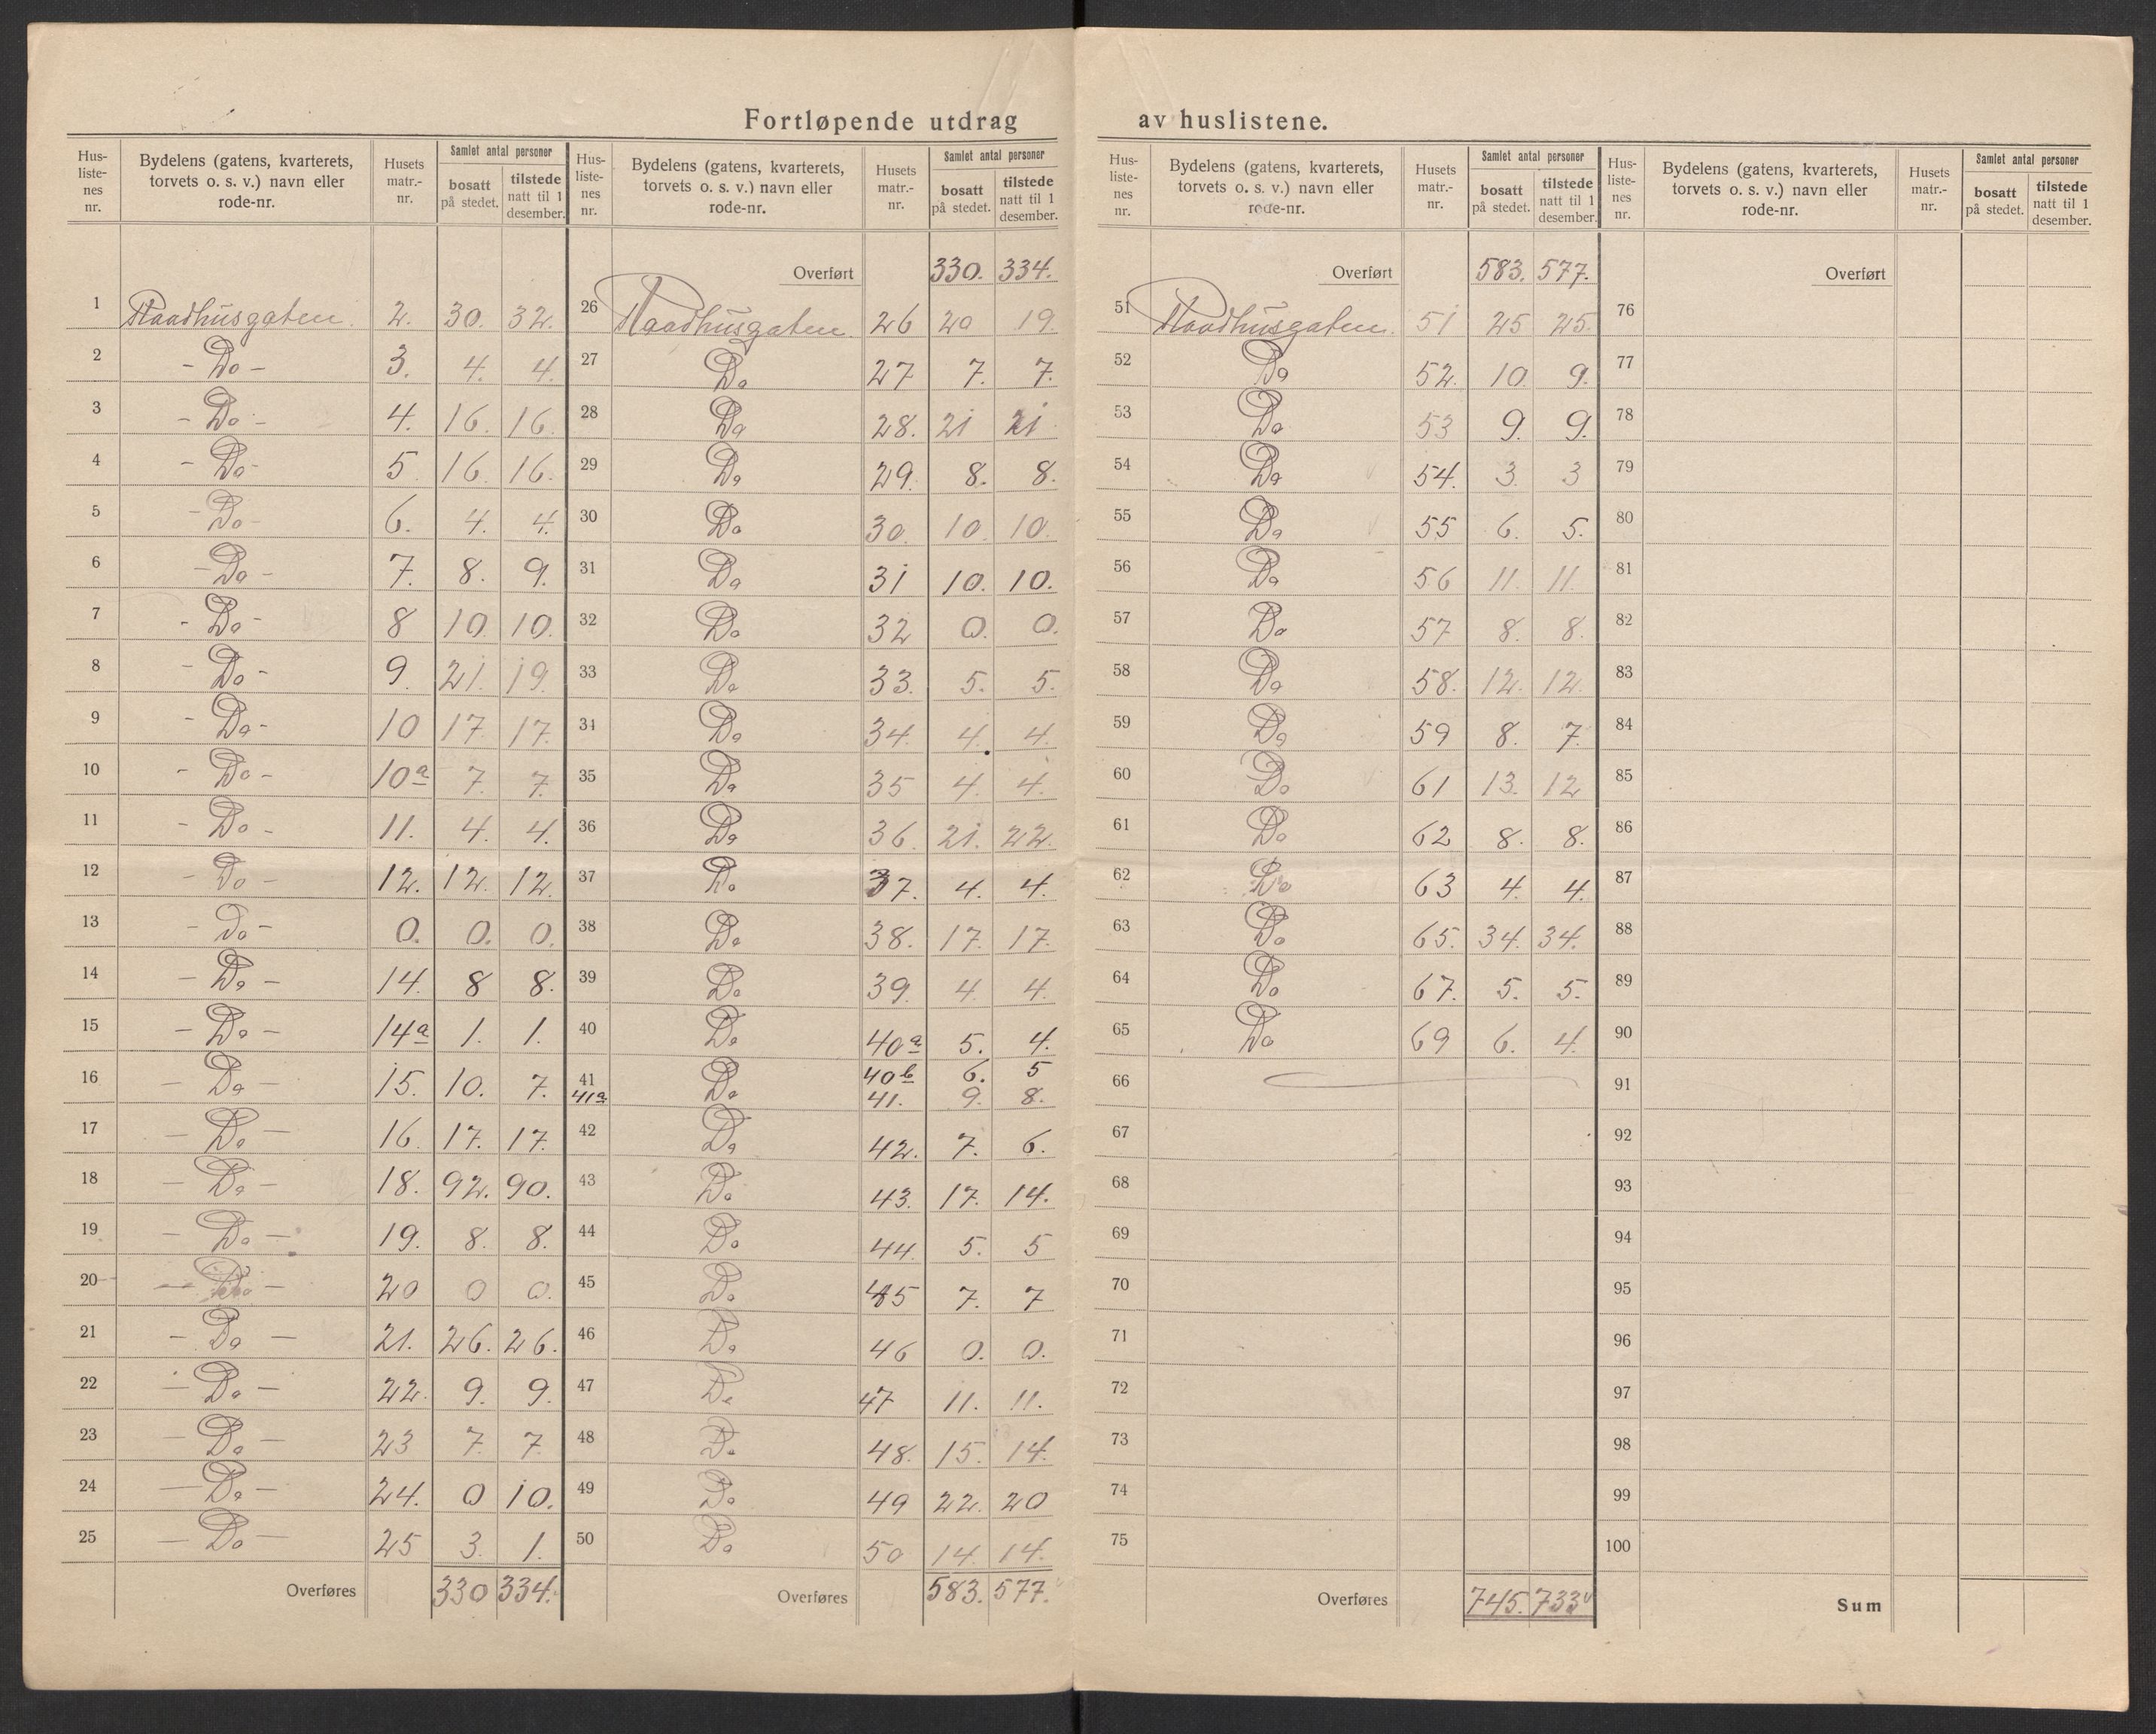 Fortløpende utdrag av huslistene.
Hus-listenes nr. | Bydelens (gatens, kvarterets, torvets o. s. v.) navn eller rode-nr. | Husets matr.-nr. | Samlet antal personer bosatt på stedet. | tilstede natt til 1 desember.
1 Raadhusgaten. 2. 30. 32.
2 - Do - 3. 4. 4.
3 - Do - 4. 16. 16.
4 - Do - 5 16. 16.
5 - Do - 6. 4. 4.
6 - Do - 7. 8. 9.
7 - Do - 8 10. 10.
8 - Do - 9. 21. 19.
9 - Do - 10 17. 17.
10 - Do - 10a 7. 7.
11 - Do - 11. 4. 4.
12 - Do - 12. 12. 12.
13 - Do - 0. 0. 0.
14 - Do - 14. 8 8.
15 - Do - 14a 1. 1.
16 - Do - 15. 10. 7.
17 - Do - 16. 17. 17.
18 - Do - 18. 92. 90.
19 - Do - 19. 8. 8.
20 - Do - 20 0 0.
21 - Do - 21. 26. 26.
22 - Do - 22. 9. 9.
23 - Do - 23 7. 7.
24 - Do - 24. 0 10.
25 - Do - 25 3. 1.
Overføres 330 334.
Hus-listenes nr. | Bydelens (gatens, kvarterets, torvets o. s. v.) navn eller rode-nr. | Husets matr.-nr. | Samlet antal personer bosatt på stedet. | tilstede natt til 1 desember.
Overført 330. 334.
26 Raadhusgaten. 26 20 19.
27 Do 27 7. 7.
28 Do 28. 21 21
29 Do 29. 8. 8.
30 Do 30. 10. 10.
31 Do 31 10. 10.
32 Do 32 0. 0.
33 Do 33. 5. 5.
34 Do 34. 4. 4.
35 Do 35 4. 4.
36 Do 36. 21. 22.
37 Do 37. 4. 4.
38 Do 38. 17. 17.
39 Do 39. 4 4.
40 Do 40a 5. 4.
41 Do 40b 6. 5
41a 41. 9. 8.
42 Do 42. 7. 6.
43 Do 43. 17. 14.
44 Do 44. 5. 5
45 Do 45 7. 7
46 Do 46 0. 0.
47 Do 47 11. 11.
48 Do 48. 15. 14.
49 Do 49 22. 20
50 Do 50 14. 14.
Overføres 583. 577.
Hus-listenes nr. | Bydelens (gatens, kvarterets, torvets o. s. v.) navn eller rode-nr. | Husets matr.-nr. | Samlet antal personer bosatt på stedet. | tilstede natt til 1 desember.
Overført 583. 577.
51 Raadhusgaten. 51 25 25.
52 Do 52. 10. 9.
53 Do 53 9. 9.
54 Do 54. 3. 3
55 Do 55 6. 5.
56 Do 56 11. 11.
57 Do 57 8. 8.
58 Do 58. 12. 12.
59 Do 59 8. 7.
60 Do 61 13. 12
61 Do 62 8. 8.
62 Do 63 4. 4.
63 Do 65. 34. 34.
64 Do 67. 5. 5.
65 Do 69 6. 4.
66
67
68
69
70
71
72
73
74
75
Overføres 745. 733
Hus-listenes nr. | Bydelens (gatens, kvarterets, torvets o. s. v.) navn eller rode-nr. | Husets matr.-nr. | Samlet antal personer bosatt på stedet. | tilstede natt til 1 desember.
Overført
76
77
78
79
80
81
82
83
84
85
86
87
88
89
90
91
92
93
94
95
96
97
98
99
100
Sum